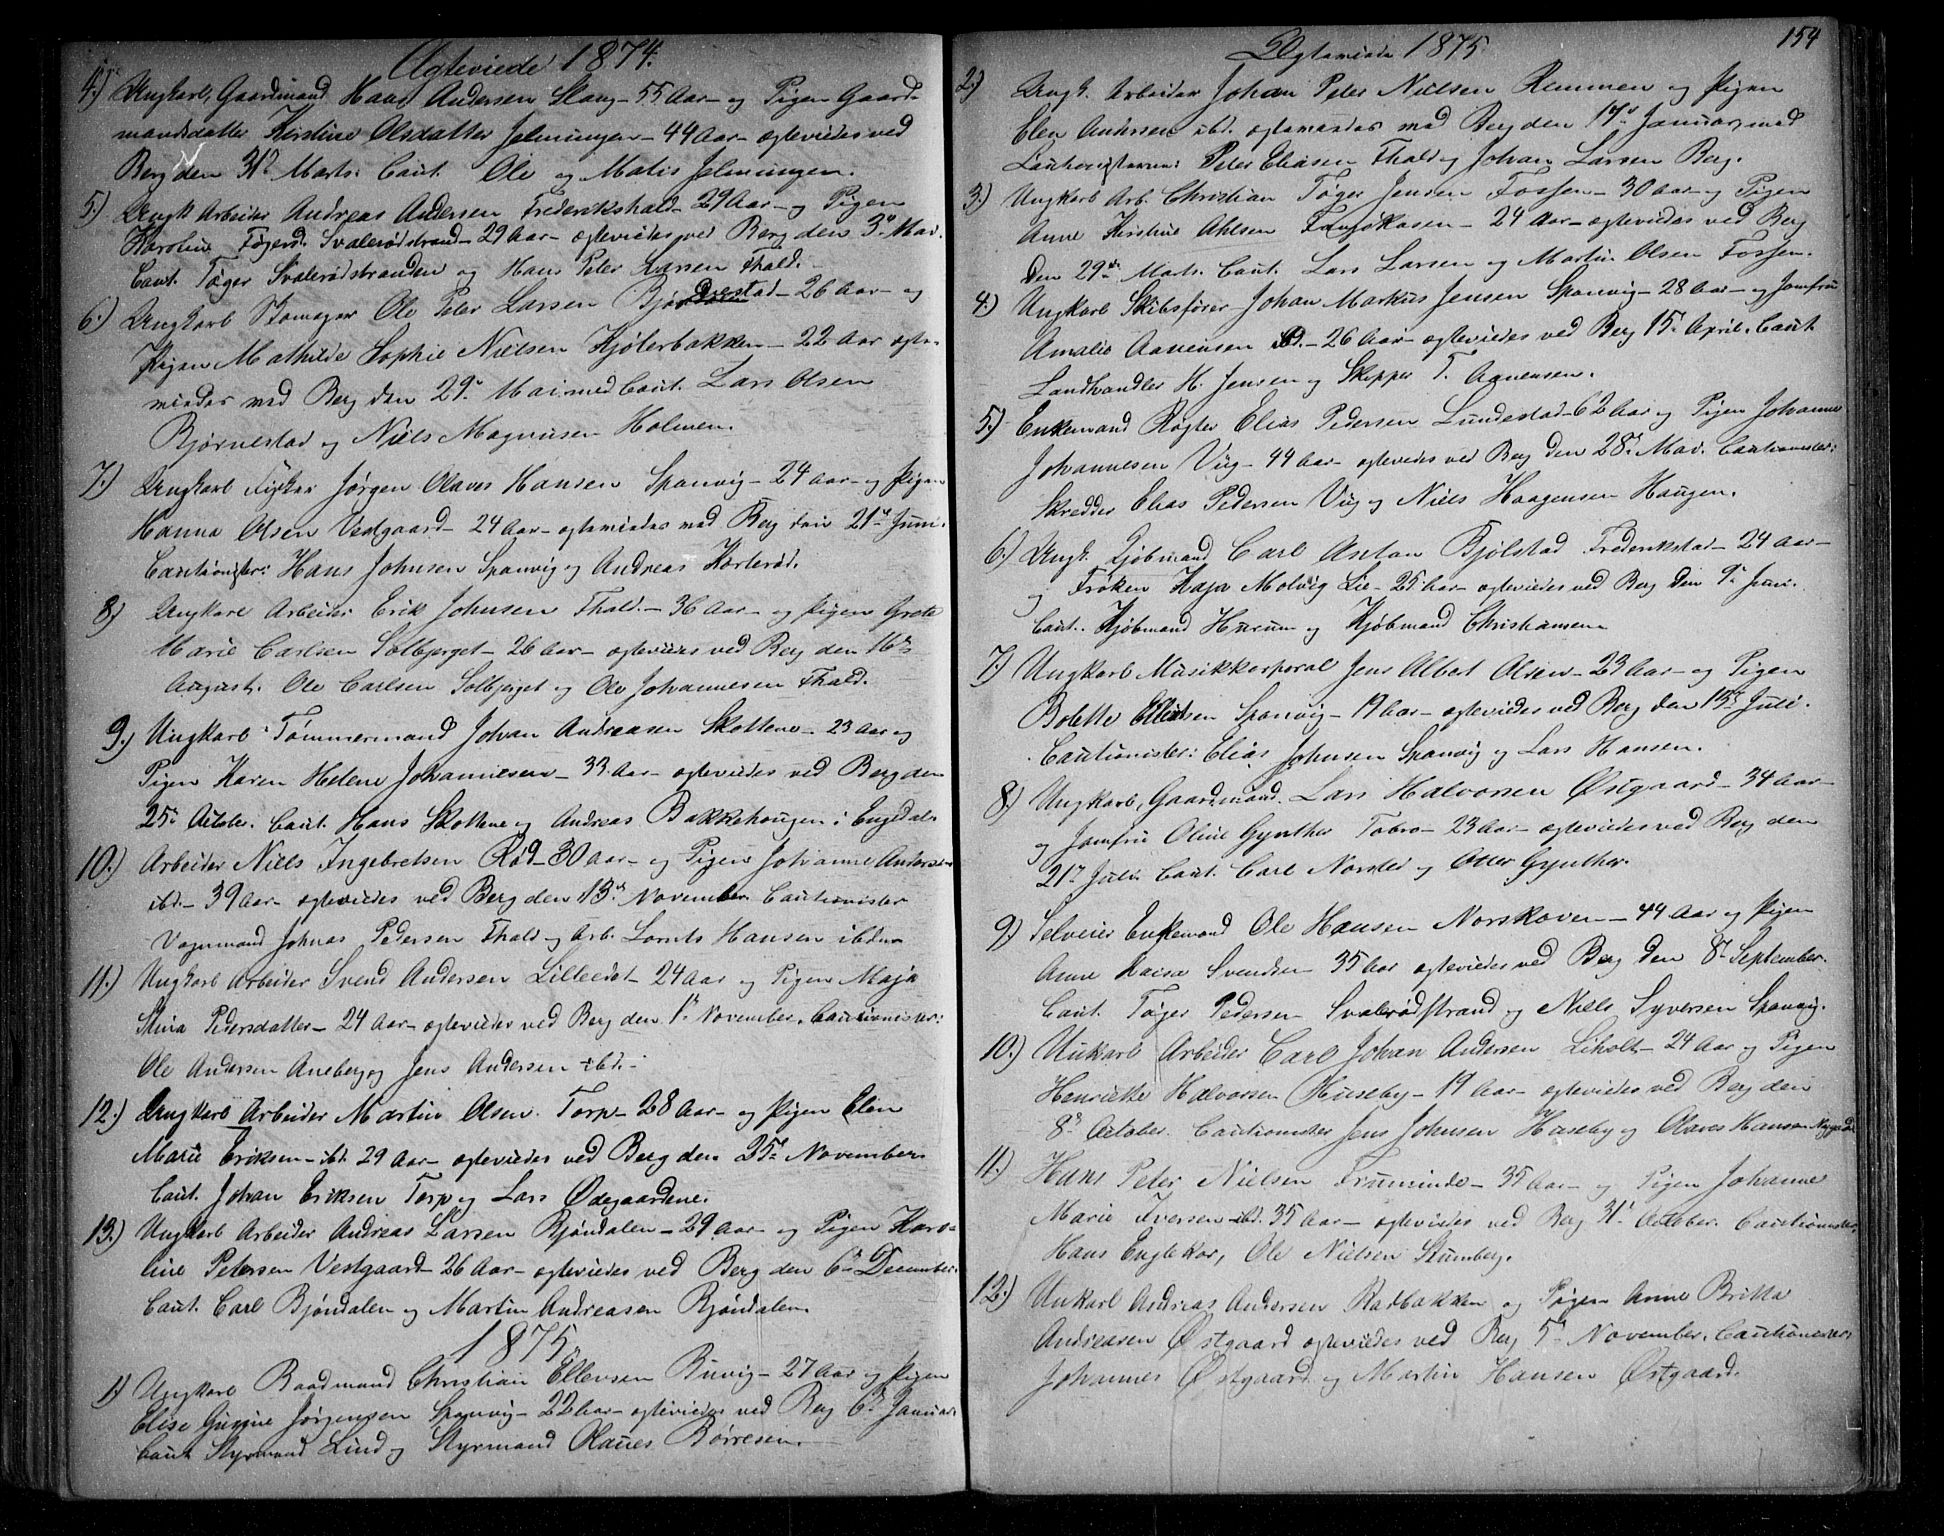 Ægteviede 1874.
4.) Ungkarl, Gaardmand Haas Andersen Slang - 55 Aar - og Pigen Gaard-
mandsdatter Kirstine Olsdatter Jelmingen - 44 Aar - ægteviedes ved
Berg den 31te Marts. Caut. Ole og Matis Jelmingen.
5.) Ungk. Arbeider Andreas Andersen Frederikshald - 29 Aar - og Pigen
Karoline Tøgersd. Svalerødstrand - 29 Aar - ægteviedes ved Berg den 3d Mai.
Caut. Tøger Svalerødstranden og Hans Peter Larsen Fhald.
6.) Ungkarl Skomager Ole Peter Larsen - 26 Aar - og
Pigen Mathilde Sophie Nielsen Kjølerbakken - 22 Aar ægte-
viedes ved Berg den 29d Mai med Caut. Lars Olsen
Bjørnestad og Niels Magnusen Holmen.
7.) Ungkarl Fisker Jørgen Olaves Hansen Sponvig - 24 Aar - og Pigen
Hanna Olsen Vestgaard - 24 Aar - ægteviedes ved Berg den 21de Juni.
Cautionister: Hans Johnsen Sponvig og Andreas Korterød.
8) Ungkarl Arbeider Erik Johnsen Fhald. - 36 Aar - og Pigen Grete
Marie Carlsen Solbjerget - 26 Aar - ægteviedes ved Berg den 16de
August. Ole Carlsen Solbjerget og Ole Johannesen Fhald.
9.) Ungkarl Tømmermand Johan Andreasen Skottene - 23 Aar og
Pigen Karen Helene Johannesen - 33 Aar - ægteviedes ved Berg den
25de October. Caut. Hans Skottene og Andreas Bakkehougen i Engedal.
10.) Arbeider Niels Ingebretsen Rød - 30 Aar - og Pigen Johanne Andersen
ibd. - 39 Aar - ægteviedes ved Berg den 13de November Cautionister
Vognmand Johnas Pedersen Fhald og Arb. Lornts Hansen ibden
11.) Ungkarl Arbeider Svend Andersen Lilleedet - 24 Aar og Pigen Maja
Stina Pedersdatter - 24 Aar - ægteviedes ved Berg den 1de November. Cautionister:
Ole Andersen Aneberg og Jens Andersen ibd. -
12.) Ungkarl Arbeider Martin Olsen Torp - 28 Aar - og Pigen Elen
Marie Eriksen - ibd. 29 Aar - ægteviedes ved Berg den 25de November
Caut. Johan Eriksen Torp og Lars Ødegaardene.
13.) Ungkarl Arbeider Andreas Larsen Bjøndalen - 29 Aar - og Pigen Karo-
line Petersen Vestgaard - 26 Aar - ægteviedes ved Berg den 6de December.
Caut. Carl Bjøndalen og Martin Andreasen Bjøndalen.
1875.
1) Ungkarl Baadmand Christian Ellevsen Buvig - 27 Aar og Pigen
Elise Gurine Jørgensen Sponvig - 22 Aar - ægteviedes ved Berg 6te Januar.
Caut. Styrmand Lind og Styrmand Olaues Børresen.
154
Ægteviede 1875.
2.) Ungk. Arbeider Johan Peter Nielsen Remmen og Pigen
Elen Andersen ibd. ægteviedes ved Berg den 17de Januar, med
Cautionisterne: Peter Eliasen Fhald og Johan Larsen Berg.
3.) Ungkarl Arb. Christian Tøger Jensen Fossen - 30 Aar - og Pigen
Anne Kirstine Ahlsen - 24 Aar - ægteviedes ved Berg
den 29de Marts. Caut. Lars Larsen og Martin Olsen Fossen.
4.) Ungkarl Skibsfører Johan Markus Jensen Sponvig - 28 Aar - og Jomfru
Amalie Aanensen ibd. - 26 Aar - ægteviedes ved Berg 15de April. Caut.
Landhandler H. Jensen og Skipper T. Aanensen.
5.) Enkemand Røgter Elias Pedersen Lundestad - 62 Aar og Pigen Johanne
Johannesen Viig - 44 Aar - ægteviedes ved Berg den 28de Mai. Cautionister:
Skredder Elias Pedersen Viig og Niels Haagensen Haugen.
6.) Ungk. Kjøbmand Carl Anton Bjølstad Frederikstad - 24 Aar -
og Frøken Kaja Moldvig Lie - 25 Aar - ægteviedes ved Berg den 9de Juni.
Caut. Kjøbmand Hurum og Kjøbmand Christiansen
7.) Ungkarl Musikkorporal Jens Albert Olsen - 23 Aar - og Pigen
Bolette Eliasen Sponvig - 19 Aar - ægteviedes ved Berg den 15de Juli.
Cautionister: Elias Johnsen Sponvig og Lars Hansen.
8.) Ungkarl, Gaardmand. Lars Halvorsen Østgaard - 34 Aar -
og Jomfru Oline Gynther Tobro - 23 Aar - ægteviedes ved Berg den
21de Juli. Caut. Carl Norslid og Otter Gynther.
9.) Selveier Enkemand Ole Hansen Norskoven - 44 Aar og Pigen
Anne Kaisa Svendsen - 35 Aar ægteviedes ved Berg den 8de September.
Caut. Tøger Pedersen Svalerødstrand og Niels Syversen Sponvig.
10.) Unkarl Arbeider Carl Johan Andersen Liholt - 24 Aar og Pigen
Henriette Halvorsen Huseby - 19 Aar - ægteviedes ved Berg den
8de October. Cautionister Jens Johnsen Huseby og Olaves Hansen
11.) Hans Peter Nielsen - 35 Aar - og Pigen Johanne
Marie Iversen - ibd. 35 Aar - ægteviedes ved Berg 31te October. Cautionister,
Hans Englekor, Ole Nielsen Stumberg.
12.) Unkarl Andreas Andersen Radbakken og Pigen Anne Britta
Andreasen Østgaard ægteviedes ved Berg 5te November. Cautionister
Johannes Østgaard og Martin Hansen Østgaard.